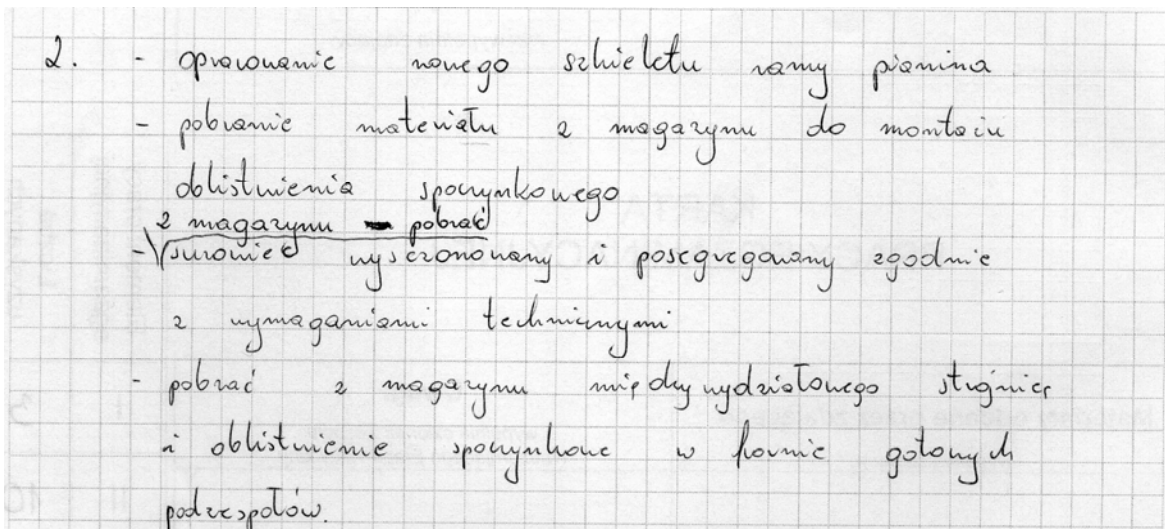 2. - opracowanie nowego szkieletu ramy pianina
- pobranie materiału z magazynu do montażu
oblistwienia spoczynkowego
z magazynu - pobrać
- surowiec wysezonowany i posegregowany zgodnie
z wymaganiami technicznymi
- pobrać z magazynu międzywydziałowego strojnicę
i oblistwienie spoczynkowe w formie gotowych
podzespołów.